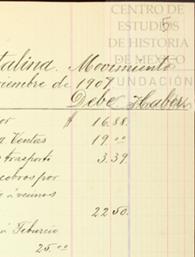 CENTRO DE
ESTUDIOS
DE HISTORIA
DE MEXICO
FUNDACIÓN
5
talina. Movimiento
viembre de 1907
Debe Haber
or $ 16.88.
a Ventas 19.00
trasporte 3.39
cobros por
22 50.
á Tiburcio
25.00